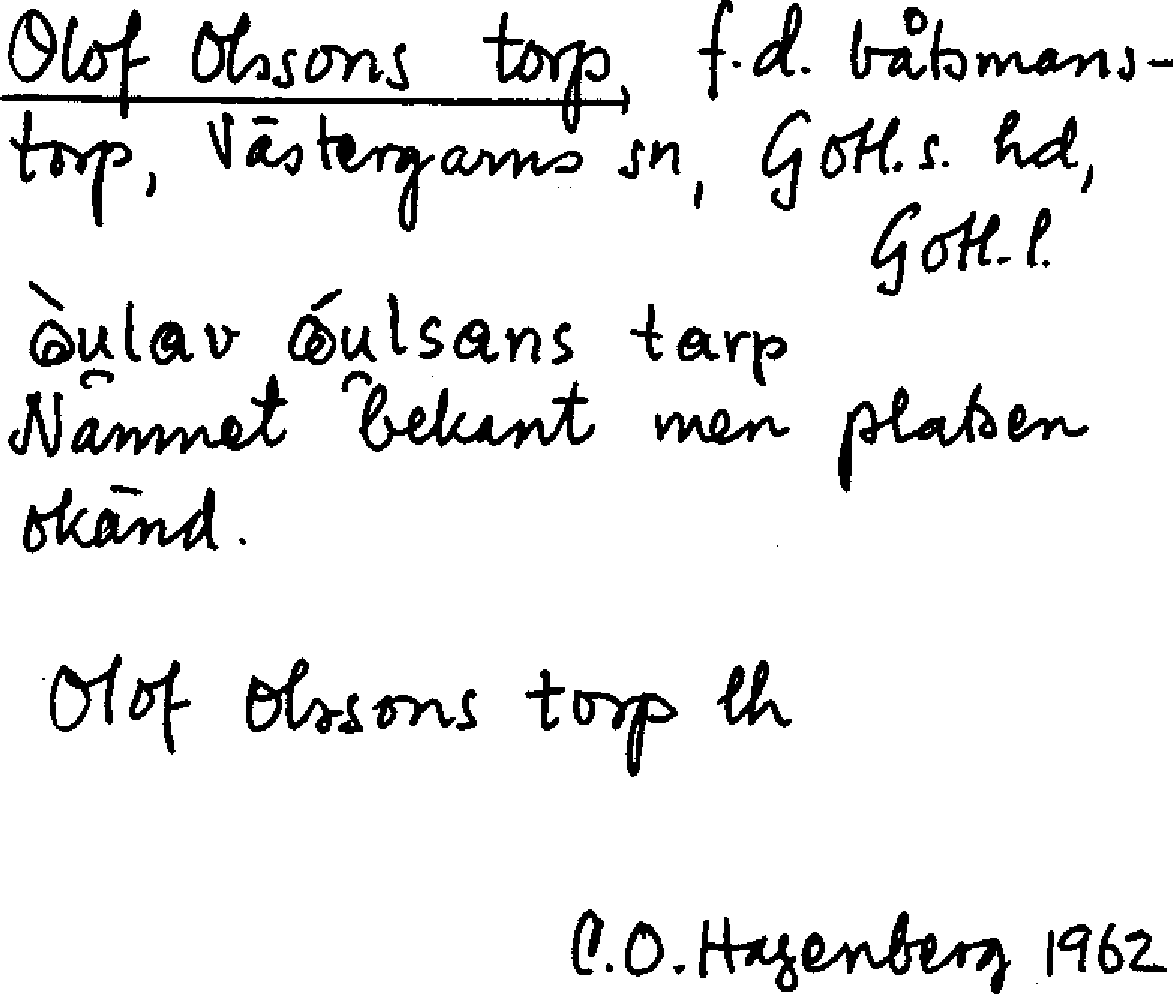 Olof Olssons torp, f.d. båtsmans-
torp, Västergarns sn, Gotl. s. hd,
Gotl. l.
òu̯lav óu̯lsans tarp
Namnet bekant men platsen
okänd.
Olof Olssons torp lh
C.O. Hagenberg 1962